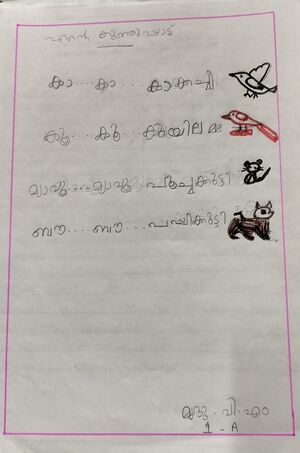 എന്റെ കുഞ്ഞുപാട്ട്
കാ... കാ... കാക്കച്ചി
കൂ... കൂ... കുയിലമ്മ
മ്യാവൂ... മ്യാവൂ... പൂച്ചക്കുട്ടി
ബൗ.... ബൗ... പപ്പിക്കുട്ടി
മൃദു. വി. എം
1 - A